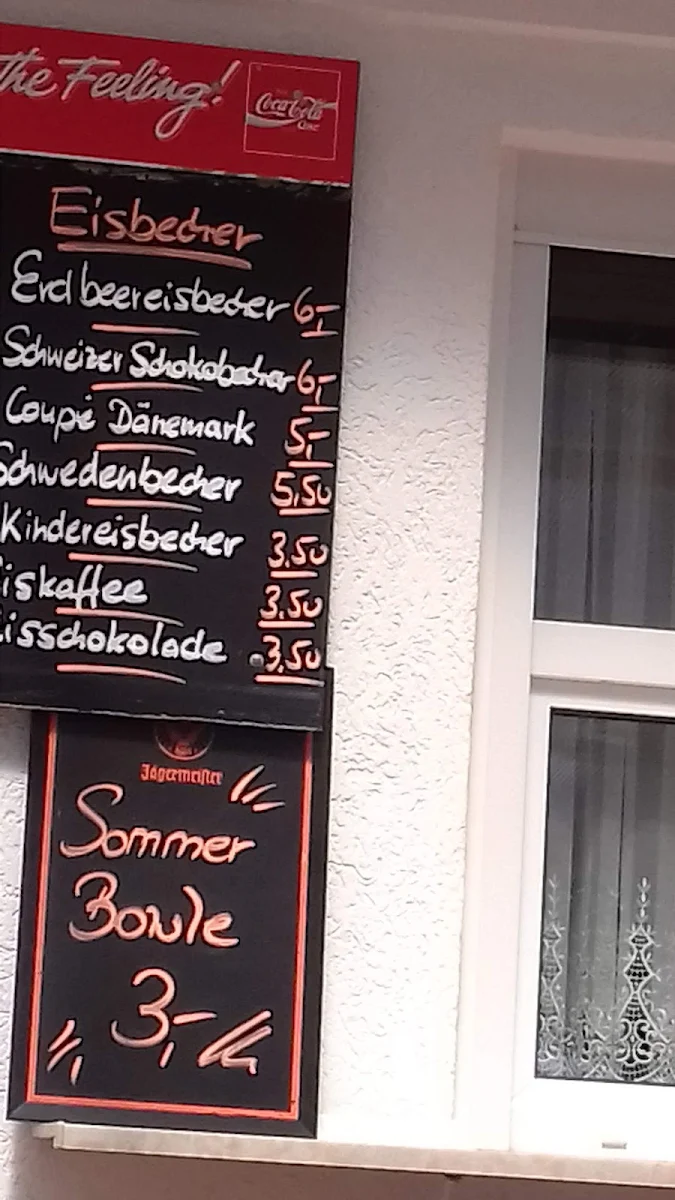 the Feeling!
Coca-Cola
Eisbecher
Erdbeereisbecher 6,-
Schweizer Schokobecher 6,-
Coupé Dänemark 5,-
Schwedenbecher 5,50
Kindereisbecher 3,50
Eiskaffee 3,50
Eisschokolade 3,50
Jägermeister
Sommer
Bowle
3,-